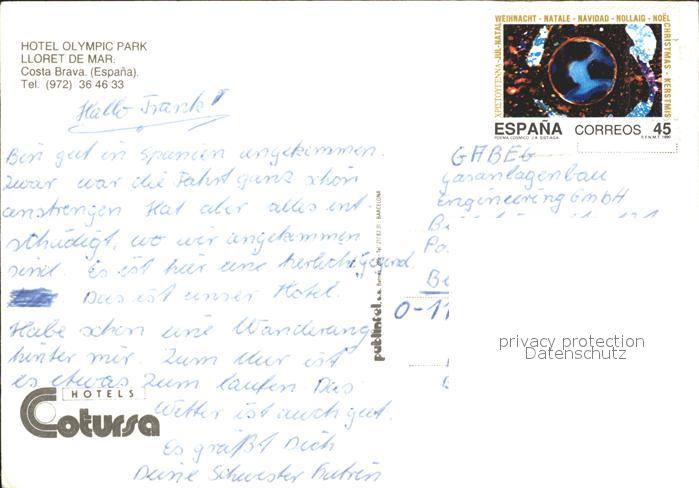 HOTEL OLYMPIC PARK
LLORET DE MAR.
Costa Brava. (España).
Tel. (972) 36 46 33
Hallo Frank!
Bin gut in Spanien angekommen.
Zwar war die Fahrt ganz schön
anstrengen Hat aber alles ent
schädigt, wo wir angekommen
sind. Es ist hier eine herliche Gegend.
Das ist unser Hotel.
Habe schon eine Wanderung
hinter mir. Zum Meer ist
es etwas zum laufen Das
Wetter ist auch gut.
Es grüßt Dich
Deine Schwester Katrin
HOTELS
Cotursa
publintel s.a.
BARCELONA
WEIHNACHT - NATALE - NAVIDAD - NOLLAIG - NOËL
CHRISTMAS - KERSTMIS
ΧΡΙΣΤΟΥΓΕΝΝΑ - JUL - NATAL
ESPAÑA CORREOS 45
POEMA COSMICO J.A. SISTIAGA F.N.M.T. 1990
GABEG
Gasanlagenbau
Engineering GmbH
Po
Be
O-11
privacy protection
Datenschutz